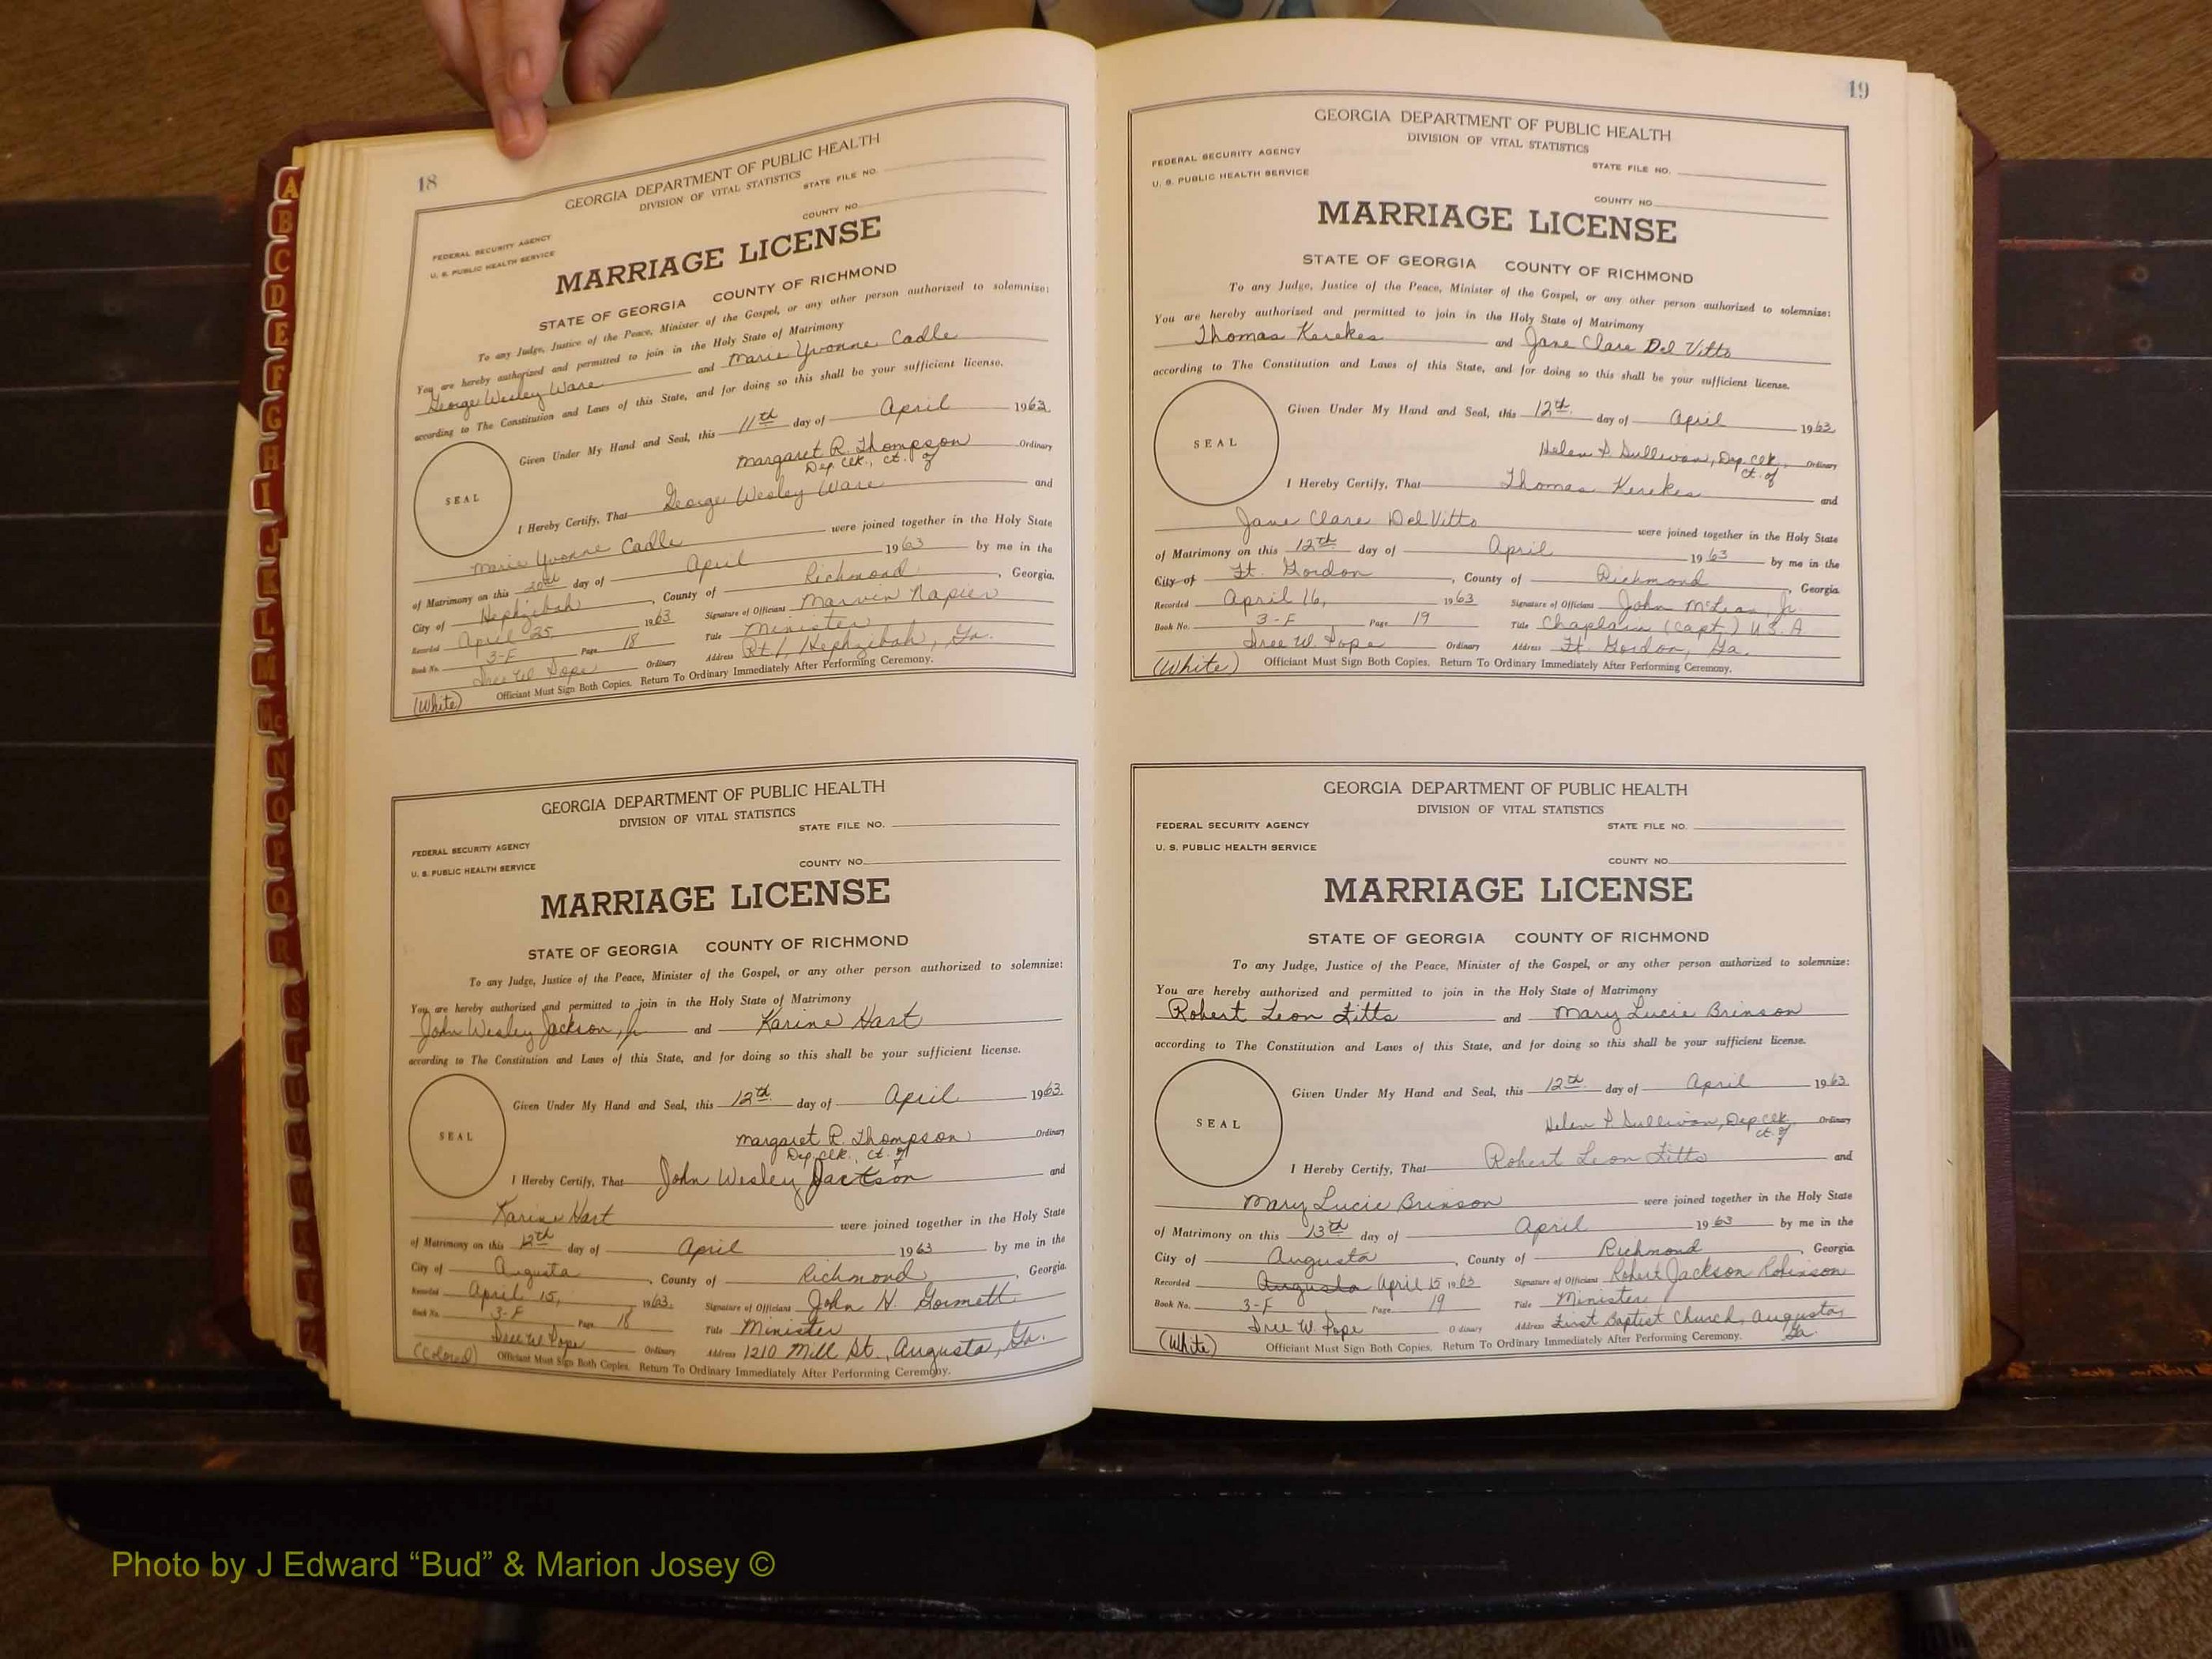 18
GEORGIA DEPARTMENT OF PUBLIC HEALTH
DIVISION OF VITAL STATISTICS
STATE FILE NO.
FEDERAL SECURITY AGENCY
U. S. PUBLIC HEALTH SERVICE
COUNTY NO.
MARRIAGE LICENSE
STATE OF GEORGIA COUNTY OF RICHMOND
To any Judge, Justice of the Peace, Minister of the Gospel, or any other person authorized to solemnize:
You are hereby authorized and permitted to join in the Holy State of Matrimony
George Wesley Ware and Marie Yvonne Cadle
according to The Constitution and Laws of this State, and for doing so this shall be your sufficient license.
Given Under My Hand and Seal, this 11th day of April 1963
Margaret R. Thompson Ordinary
Dep. Clk., Ct. of
SEAL
I Hereby Certify, That George Wesley Ware and
Marie Yvonne Cadle were joined together in the Holy State
of Matrimony on this 20th day of April 1963 by me in the
City of Hephzibah, County of Richmond, Georgia.
Recorded April 25 1963 Signature of Officiant Marvin Napier
Book No. 3-F Page 18 Title Minister
Ordinary Address Rt 1, Hephzibah, Ga.
(White) Officiant Must Sign Both Copies. Return To Ordinary Immediately After Performing Ceremony.
GEORGIA DEPARTMENT OF PUBLIC HEALTH
DIVISION OF VITAL STATISTICS
STATE FILE NO.
FEDERAL SECURITY AGENCY
U. S. PUBLIC HEALTH SERVICE
COUNTY NO.
MARRIAGE LICENSE
STATE OF GEORGIA COUNTY OF RICHMOND
To any Judge, Justice of the Peace, Minister of the Gospel, or any other person authorized to solemnize:
You are hereby authorized and permitted to join in the Holy State of Matrimony
John Wesley Jackson, Jr and Karine Hart
according to The Constitution and Laws of this State, and for doing so this shall be your sufficient license.
Given Under My Hand and Seal, this 12th day of April 1963.
Margaret R. Thompson Ordinary
Dep. Clk., Ct. of
SEAL
I Hereby Certify, That John Wesley Jackson and
Karine Hart were joined together in the Holy State
of Matrimony on this 12th day of April 1963 by me in the
City of Augusta, County of Richmond, Georgia.
Recorded April 15, 1963. Signature of Officiant John H.
Book No. 3-F Page 18 Title Minister
Ordinary Address 1210 Mill St., Augusta, Ga.
(Colored) Officiant Must Sign Both Copies. Return To Ordinary Immediately After Performing Ceremony.
19
GEORGIA DEPARTMENT OF PUBLIC HEALTH
DIVISION OF VITAL STATISTICS
FEDERAL SECURITY AGENCY
STATE FILE NO.
U. S. PUBLIC HEALTH SERVICE
COUNTY NO.
MARRIAGE LICENSE
STATE OF GEORGIA COUNTY OF RICHMOND
To any Judge, Justice of the Peace, Minister of the Gospel, or any other person authorized to solemnize:
You are hereby authorized and permitted to join in the Holy State of Matrimony
Thomas Kerekes and Jane Clare Del Vitto
according to The Constitution and Laws of this State, and for doing so this shall be your sufficient license.
Given Under My Hand and Seal, this 12th. day of April 1963
SEAL
Helen P. Sullivan, Dep. Clk. Ordinary
Ct. of
I Hereby Certify, That Thomas Kerekes and
Jane Clare Del Vitto were joined together in the Holy State
of Matrimony on this 12th day of April 1963 by me in the
City of Ft. Gordon, County of Richmond, Georgia
Recorded April 16, 1963 Signature of Officiant John McLean, Jr.
Book No. 3-F Page 19 Title Chaplain (Capt.) U.S.A
Ordinary Address Ft. Gordon, Ga.
(White) Officiant Must Sign Both Copies. Return To Ordinary Immediately After Performing Ceremony.
GEORGIA DEPARTMENT OF PUBLIC HEALTH
DIVISION OF VITAL STATISTICS
FEDERAL SECURITY AGENCY STATE FILE NO.
U. S. PUBLIC HEALTH SERVICE
COUNTY NO.
MARRIAGE LICENSE
STATE OF GEORGIA COUNTY OF RICHMOND
To any Judge, Justice of the Peace, Minister of the Gospel, or any other person authorized to solemnize:
You are hereby authorized and permitted to join in the Holy State of Matrimony
Robert Leon Fitts and Mary Lucie Brinson
according to The Constitution and Laws of this State, and for doing so this shall be your sufficient license.
Given Under My Hand and Seal, this 12th day of April 1963.
SEAL
Helen P. Sullivan, Dep Clk. Ordinary
Ct. of
I Hereby Certify, That Robert Leon Fitts and
Mary Lucie Brinson were joined together in the Holy State
of Matrimony on this 13th day of April 1963 by me in the
City of Augusta, County of Richmond, Georgia
Recorded Augusta April 15 1963 Signature of Officiant Robert Jackson Robinson
Book No. 3-F Page 19 Title Minister
Address First Baptist Church, Augusta,
Ordinary Ga.
(White) Officiant Must Sign Both Copies. Return To Ordinary Immediately After Performing Ceremony.
A
B
C
D
E
F
G
H
I
J
K
L
M
Mc
N
O
P
Q
R
S
T
U
V
W
X
Y
Z
Photo by J Edward “Bud” & Marion Josey ©